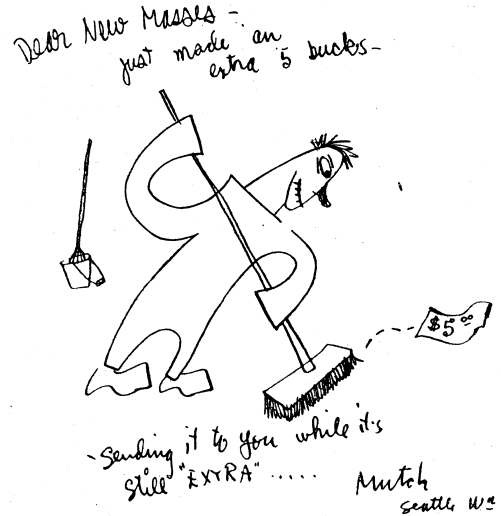 Dear New Masses –
just made an
extra 5 bucks –
$5.00
Sending it to you while it's
still "EXTRA" .....
Mutch
Seattle Wn